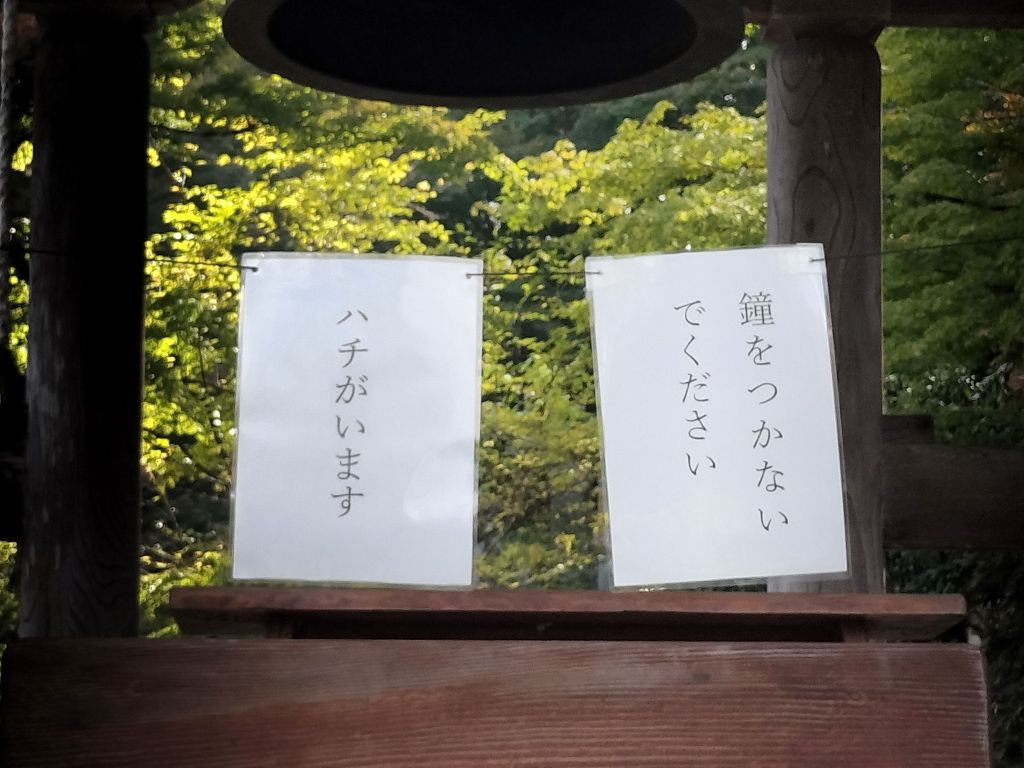 鐘をつかない
でください
ハチがいます